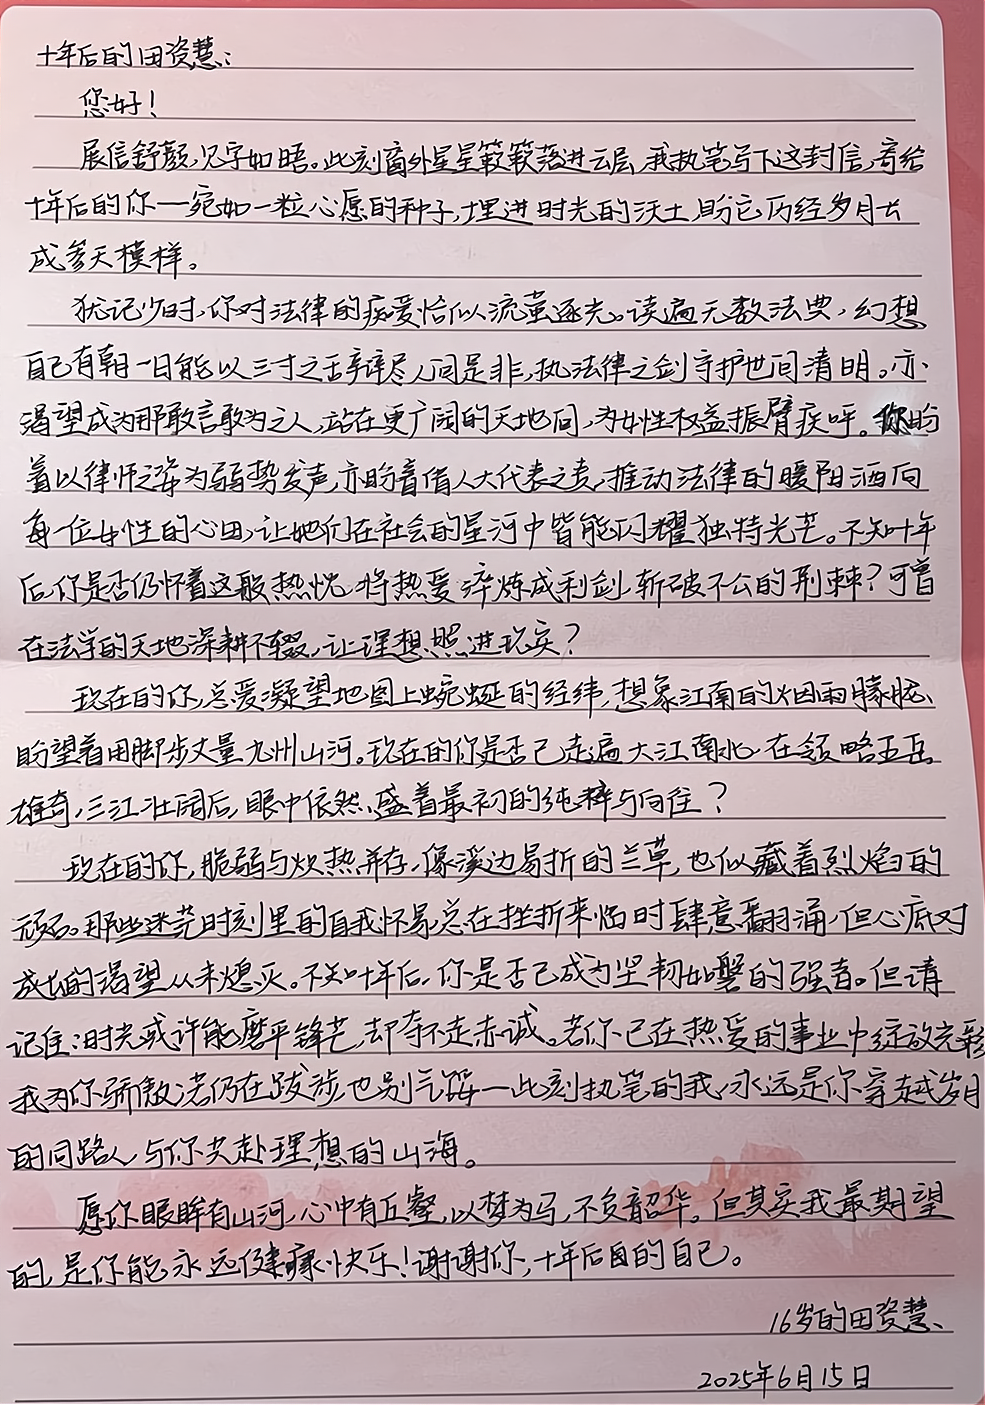 十年后的田资慧：
您好！
展信舒颜，见字如晤。此刻窗外星星簌簌落进云层，我执笔写下这封信，寄给
十年后的你一宛如一粒心愿的种子，埋进时光的沃土，盼它历经岁月长
成参天模样。
犹记少时，你对法律的痴爱恰似流萤逐光。读遍无数法典，幻想
自己有朝一日能以三寸之舌辩尽人间是非，执法律之剑守护世间清明。亦
渴望成为那敢言敢为之人，站在更广阔的天地间，为女性权益振臂疾呼。你盼
着以律师之姿为弱势发声，亦盼着借人大代表之责，推动法律的暖阳洒向
每一位女性的心田，让她们在社会的星河中皆能闪耀独特光芒。不知十年
后，你是否仍怀着这般热忱，将热爱淬炼成利剑，斩破不公的荆棘？可曾
在法学的天地深耕不辍，让理想照进现实？
现在的你，总爱凝望地图上蜿蜒的经纬，想象江南的烟雨朦胧，
盼望着用脚步丈量九州山河。现在的你是否已走遍大江南北，在领略五岳
雄奇，三江壮阔后，眼中依然盛着最初的纯粹与向往？
现在的你，脆弱与炽热并存，像溪边易折的兰草，也似藏着烈焰的
顽石。那些迷茫时刻里的自我怀疑，总在挫折来临时肆意翻涌，但心底对
成长的渴望从未熄灭。不知十年后，你是否已成为坚韧如磐的强者。但请
记住：时光或许能磨平锋芒，却夺不走赤诚。若你已在热爱的事业中绽放光彩
我为你骄傲；若仍在跋涉，也别气馁一此刻执笔的我，永远是你穿越岁月
的同路人，与你共赴理想的山海。
愿你眼眸有山河，心中有丘壑，以梦为马，不负韶华。但其实我最期望
的，是你能永远健康快乐！谢谢你，十年后自的自己。
16岁的田资慧、
2025年6月15日